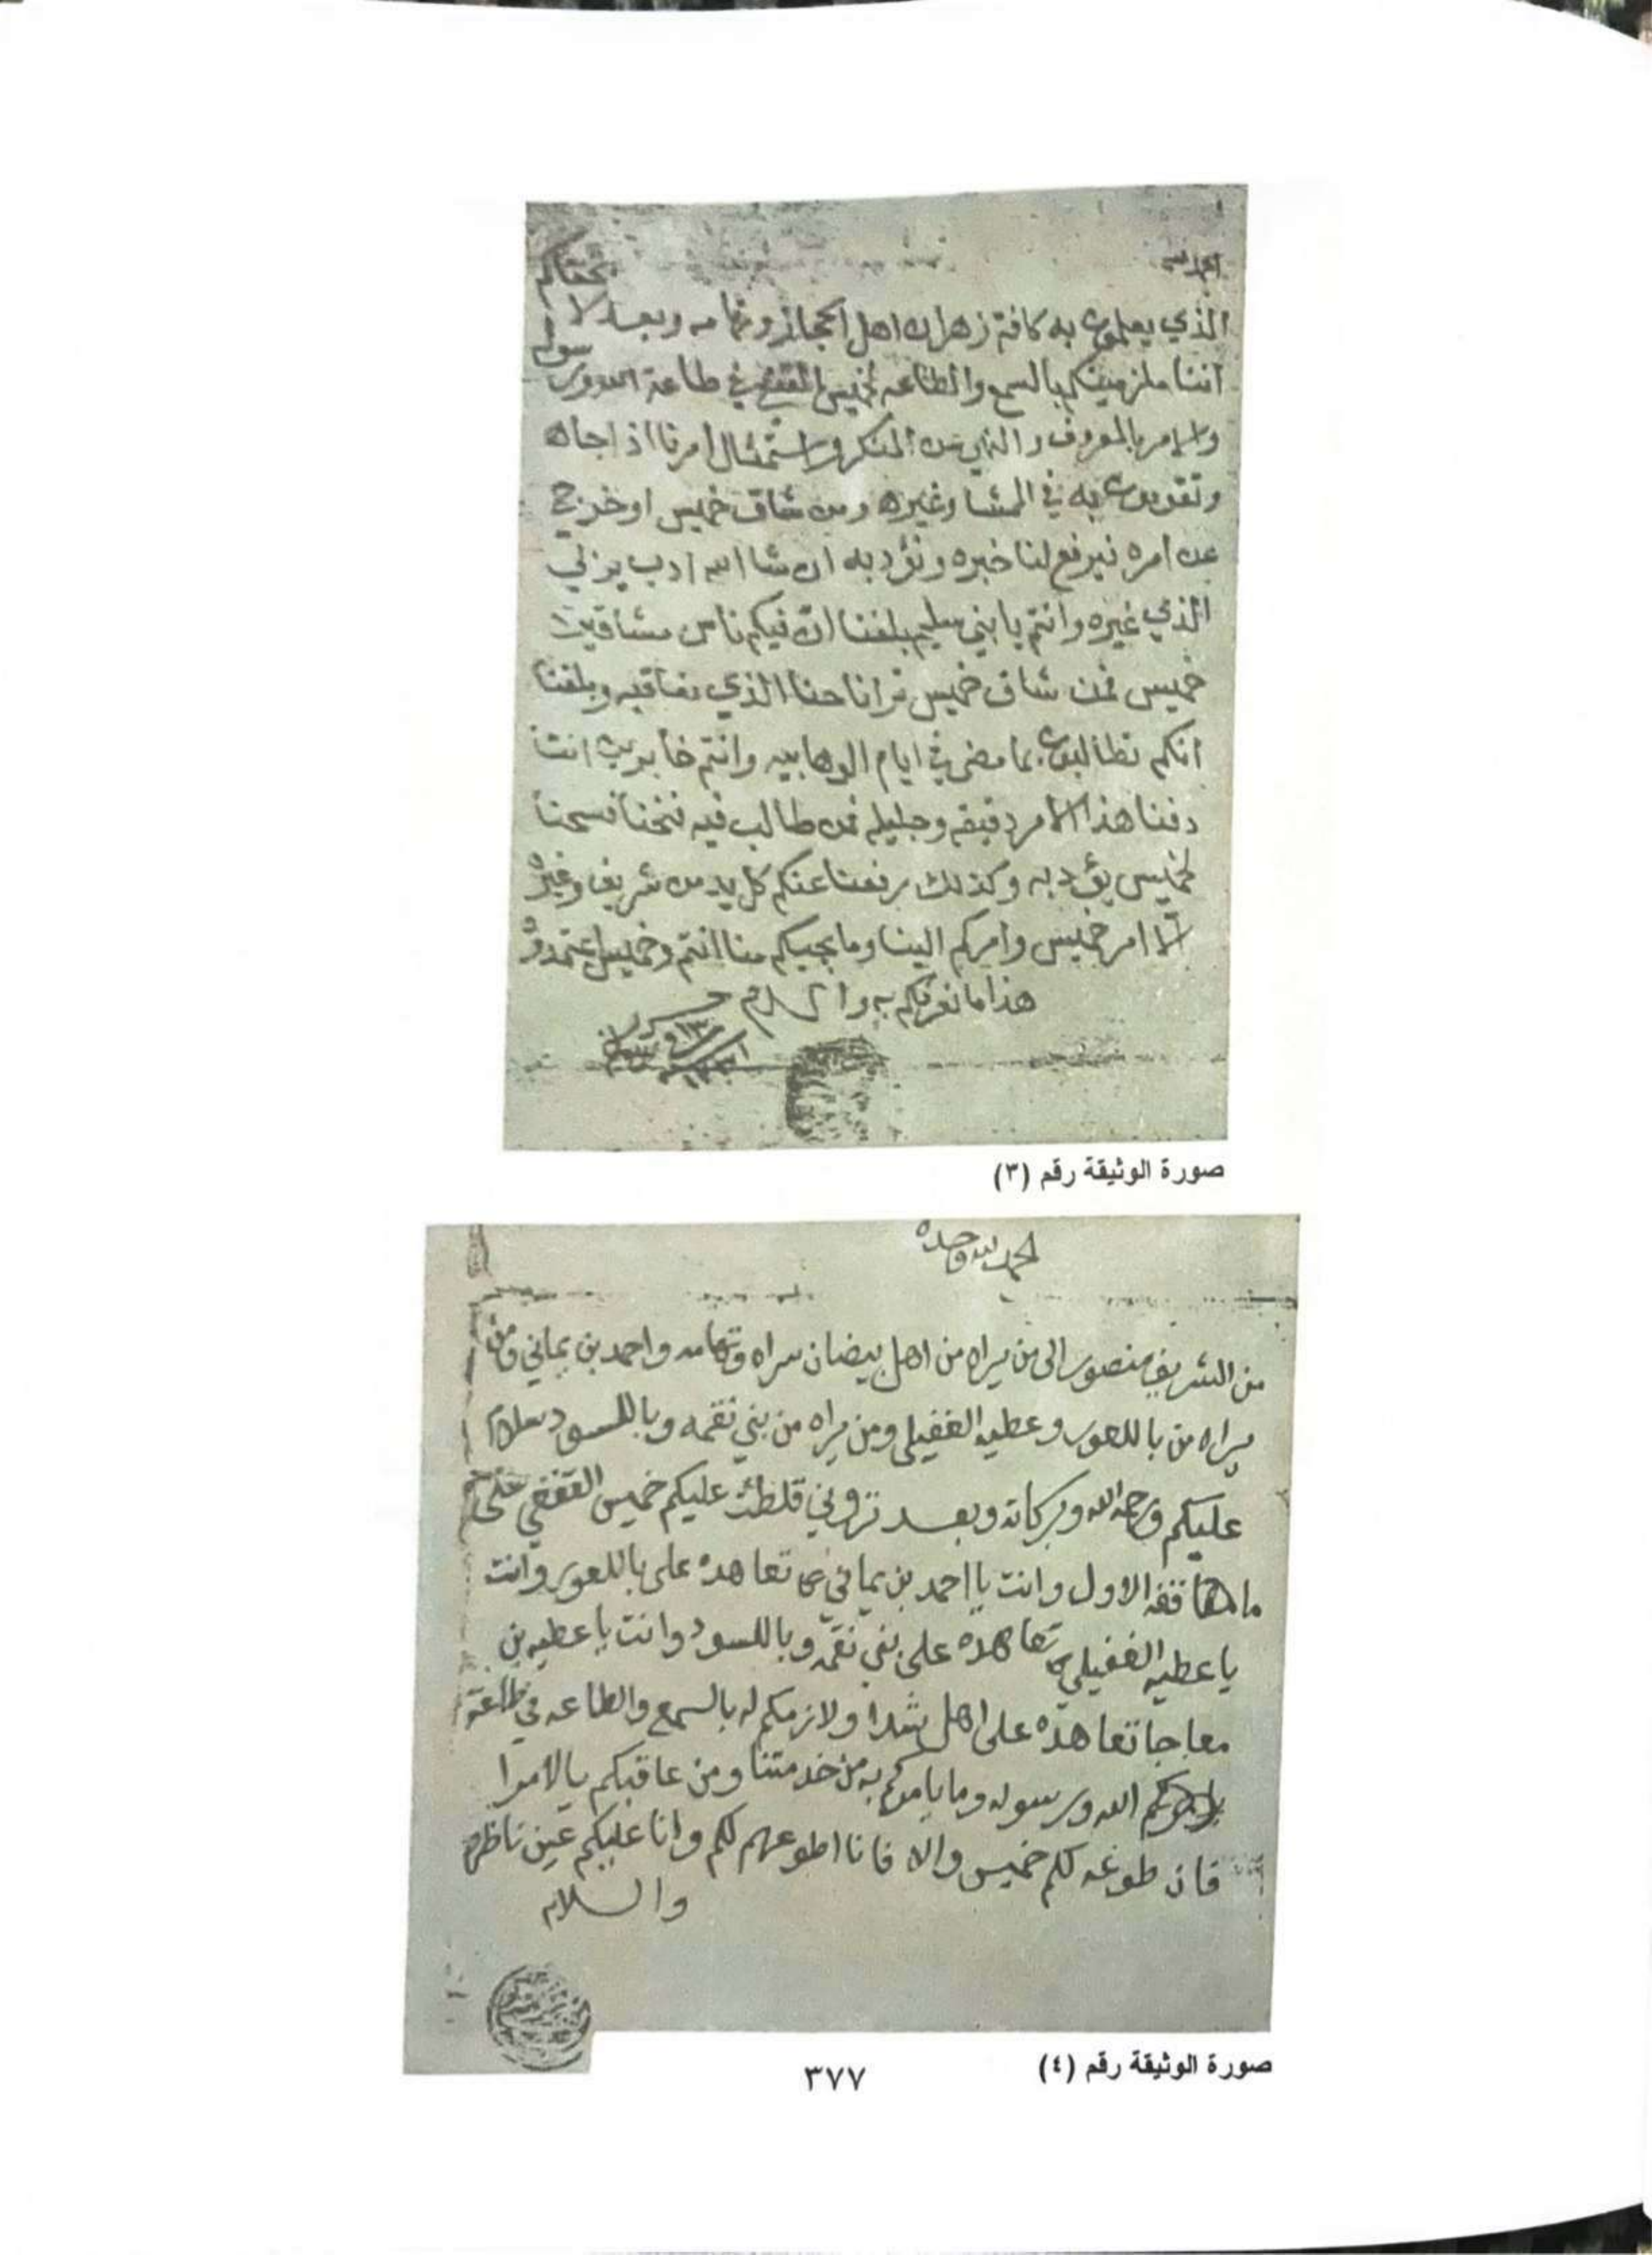 الحمد لله
الذي يعلمون به كافة زهران اهل الحجاز وتهامه وبعد لا يخفاكم
اننا ملزمينكم بالسمع والطاعه لخميس القفعي في طاعة الله ورسوله
والامر بالمعروف والنهي عن المنكر واستمثال امرنا اذا جاه
وتقومون به في المشا وغيره ومن شاق خميس او خرج
عن امره نيرفع لنا خبره ونؤدبه ان شا الله ادب يزلي
الذي غيره وانتم يا بني سليم بلغنا ان فيكم ناس مشاقين
خميس فمن شاق خميس ترانا حنا الذي نعاقبه وبلغنا
انكم تطالبون بما مضى في ايام الوهابيه وانتم خابرين اننا
دفنا هذا الامر دقيقه وجليله فمن طالب فيه فنحنا فسحنا
لخميس يؤدبه وكذلك رفعنا عنكم كل يد من شريف وغيره
الا امر خميس وامركم الينا وما يجيكم منا انتم وخميس اعتمدوه
هذا ما نعرفكم به والسلام
صورة الوثيقة رقم (٣)
الحمد لله وحده
من الشريف منصور الى من يراه من اهل بيضان سراه وتهامه واحمد بن يماني ومن
يراه من باللعور وعطيه الغفيلي ومن يراه من بني نقمه وباللسود سلام
عليكم ورحمة الله وبركاته وبعد تروني قلطت عليكم خميس القفعي على
ما هي قفه الاول وانت يا احمد بن يماني تعاهده على باللعور وانت
يا عطيه الغفيلي تعاهده على بني نقمه وباللسود وانت يا عطيه بن
معاجا تعاهده على اهل شدا ولازمكم له بالسمع والطاعه في طاعة
الله ورسوله وما يامركم به من خدمتنا ومن عاقبكم بالامرا
فان طوعه لكم خميس والا فانا اطوعهم لكم وانا عليكم عين ناظره
والسلام
صورة الوثيقة رقم (٤)
٣٧٧